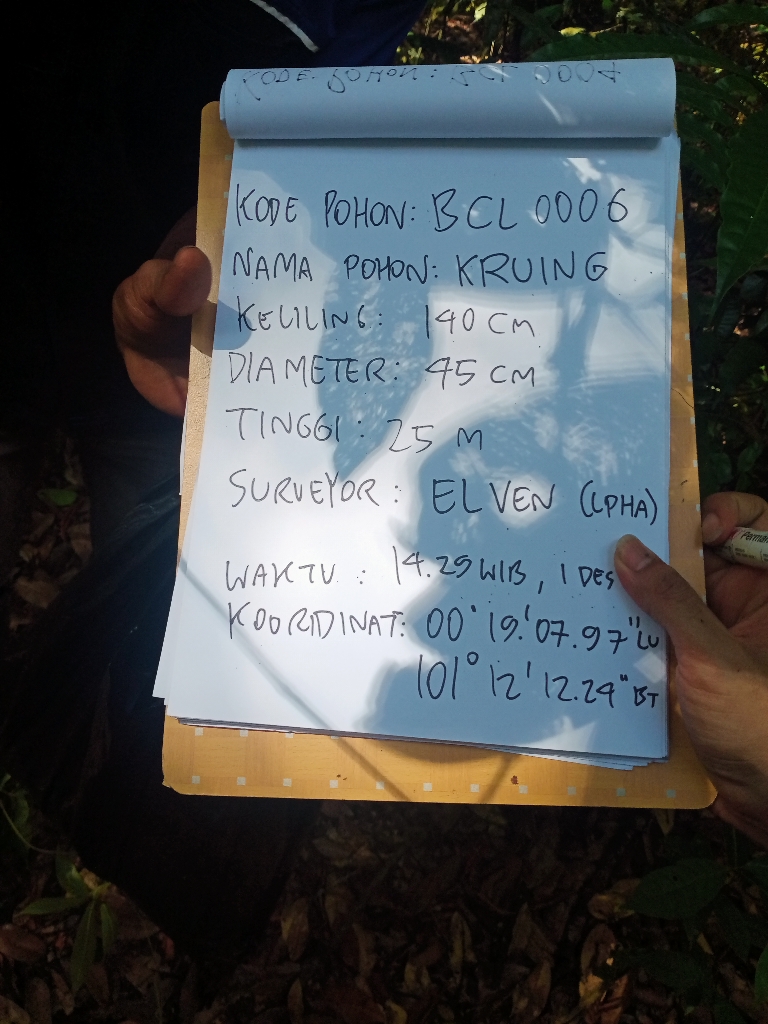 KODE POHON: BCL 0004
KODE POHON: BCL 0006
NAMA POHON: KRUING
KELILING: 140 CM
DIAMETER: 45 CM
TINGGI: 25 M
SURVEYOR: ELVEN (LPHA)
WAKTU : 14.25 WIB, 1 DES
KOORDINAT: 00° 19.' 07.97" LU
101° 12' 12.24" BT
Perman